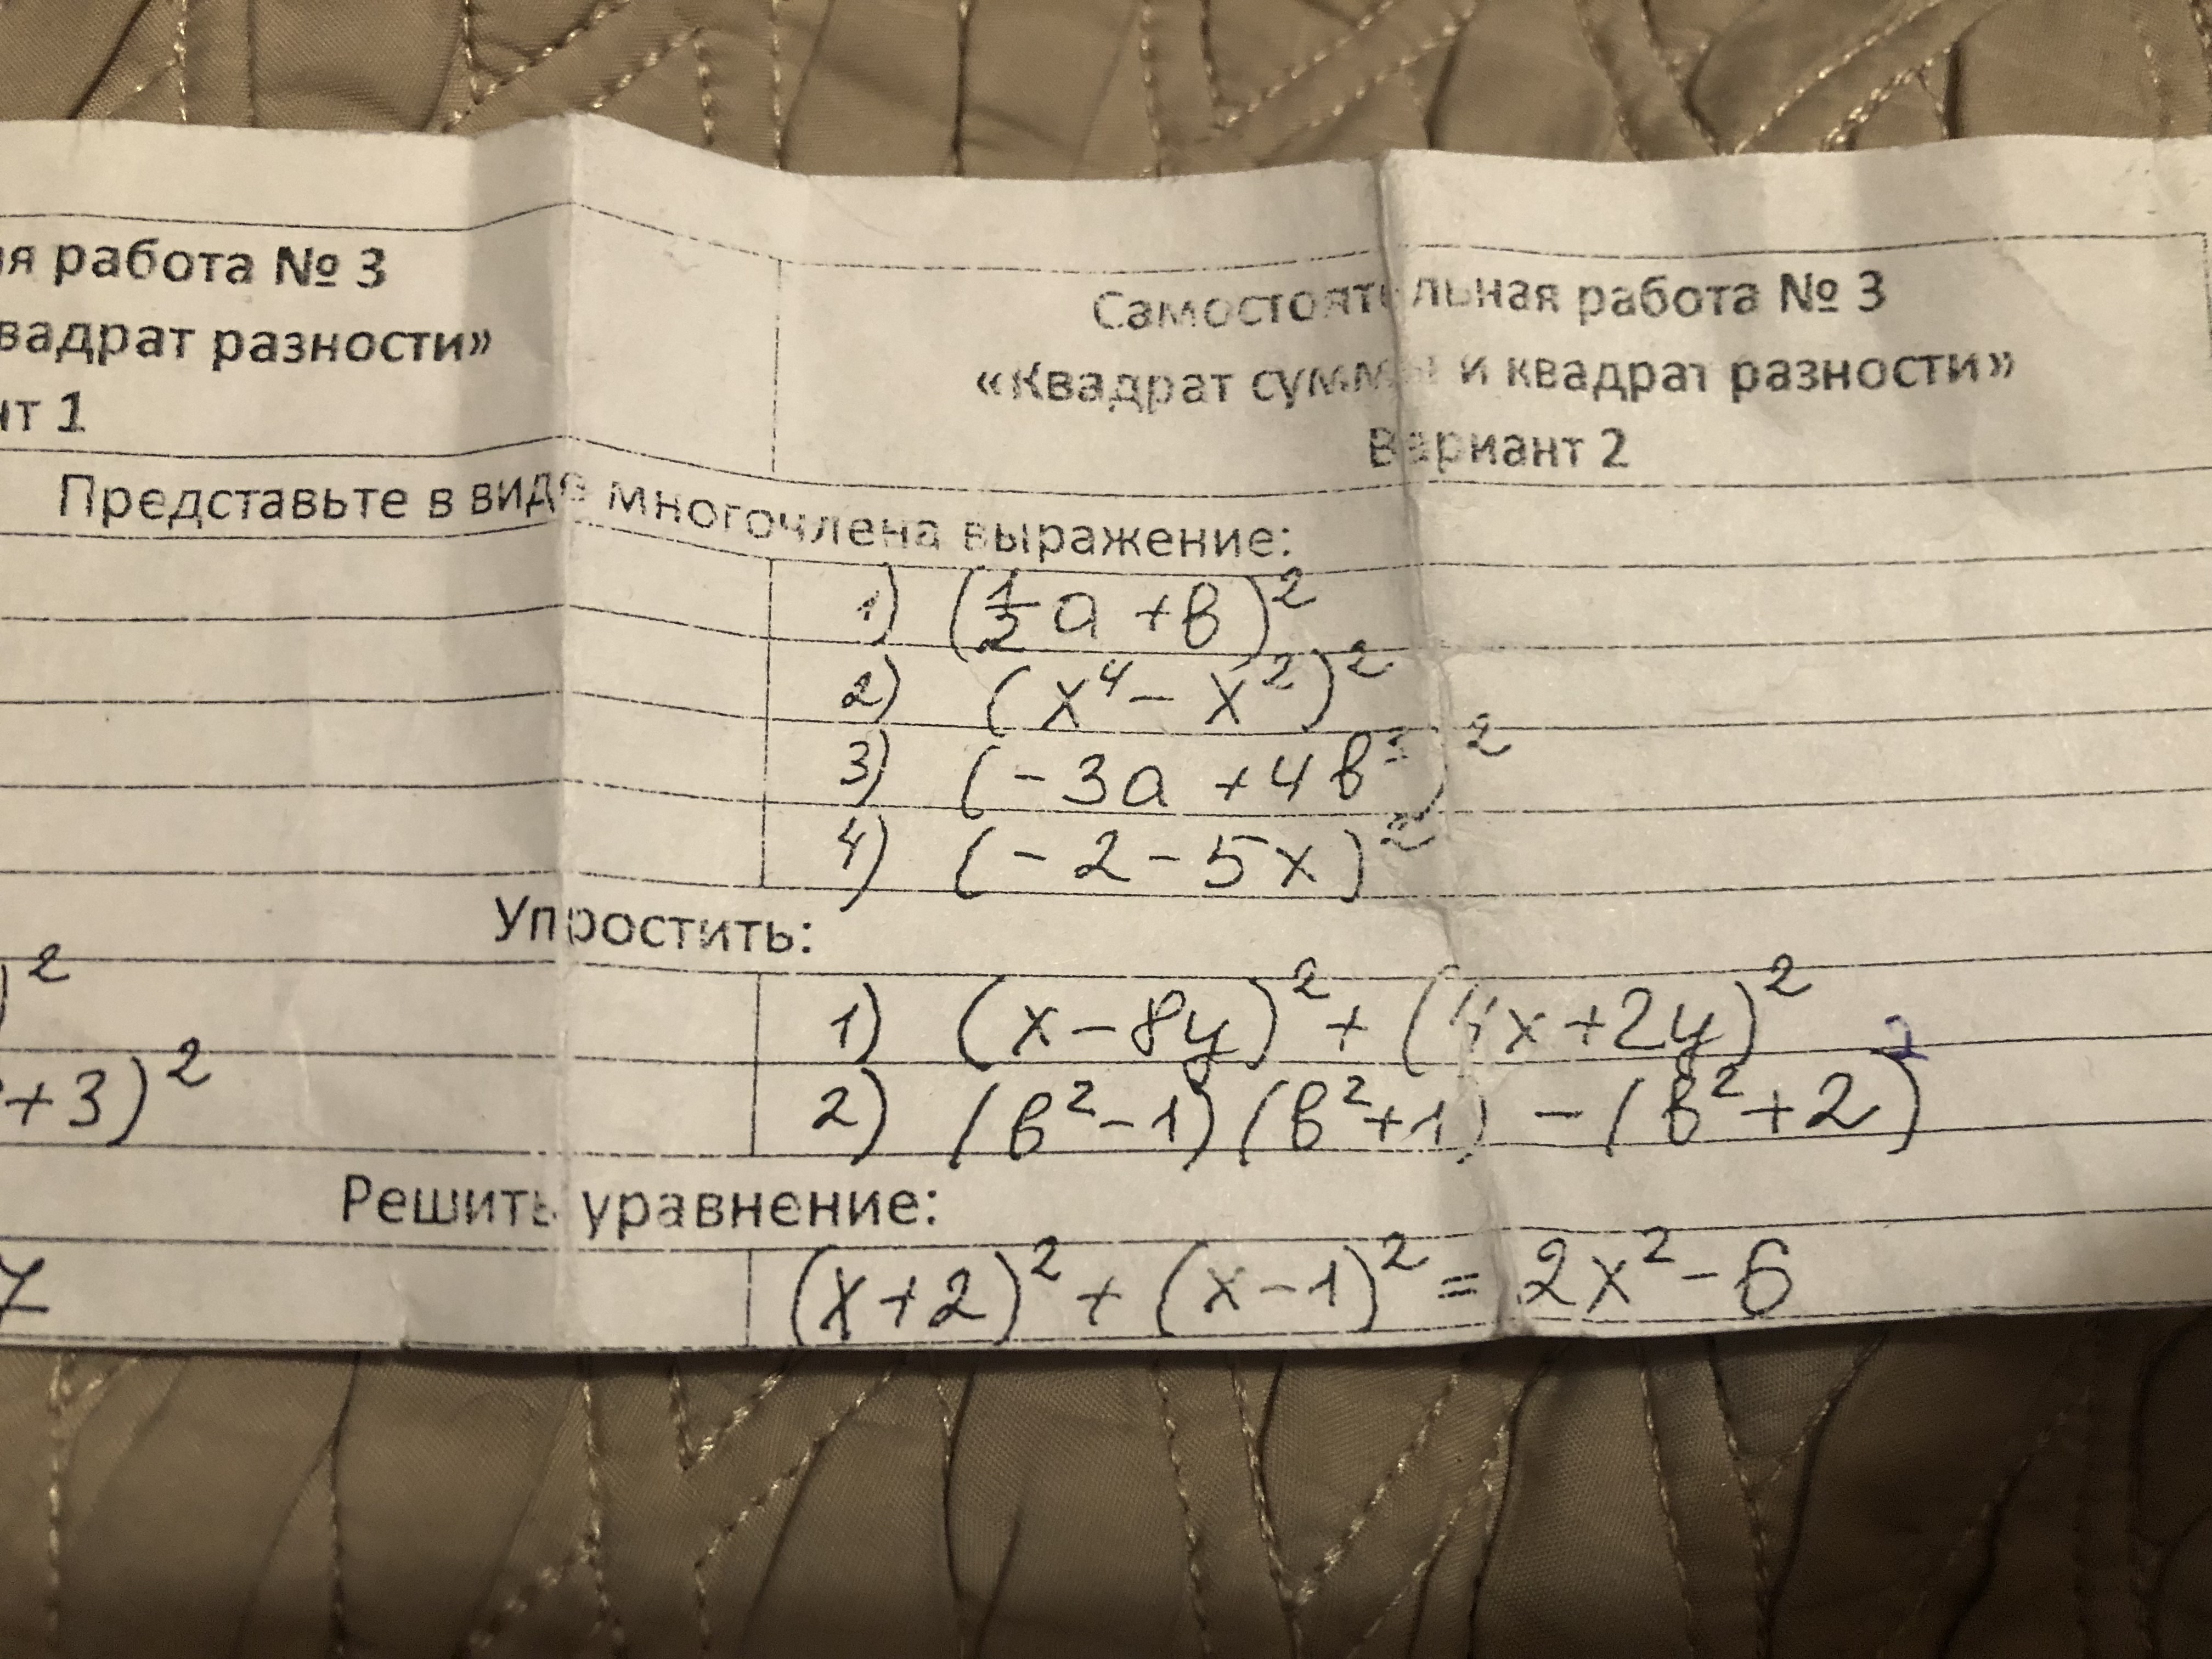 я работа № 3
вадрат разности»
нт 1
Самостоятельная работа № 3
«Квадрат суммы и квадрат разности»
Вариант 2
Представьте в виде многочлена выражение:
1) (½a + в)²
2) (x⁴ - x²)²
3) (-3a + 4в )²
4) (-2 - 5x)²
Упростить:
)²
+3)²
1) (x - 8y)² + (4x + 2y)²
2) (в² - 1)(в² + 1) - (в² + 2)²
Решить уравнение:
7
(x + 2)² + (x - 1)² = 2x² - 6